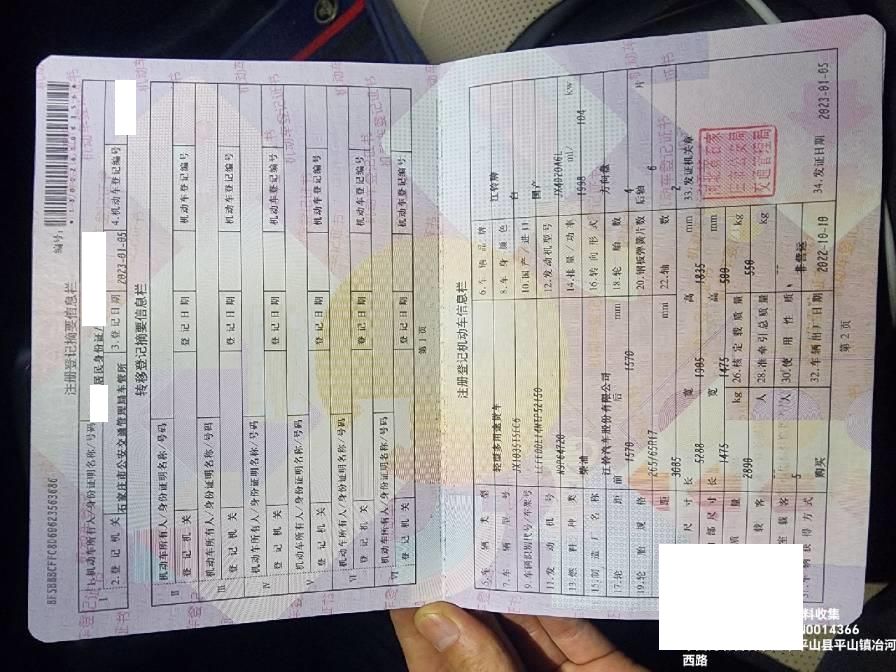 编号:
注册登记摘要信息栏
I
1.机动车所有人/身份证明名称/号码
居民身份证/
2.登记机关
石家庄市公安交通管理局车管所
3.登记日期
2023-01-05
4.机动车登记编号
转移登记摘要信息栏
II
机动车所有人/身份证明名称/号码
登记机关
登记日期
机动车登记编号
III
机动车所有人/身份证明名称/号码
登记机关
登记日期
机动车登记编号
IV
机动车所有人/身份证明名称/号码
登记机关
登记日期
机动车登记编号
V
机动车所有人/身份证明名称/号码
登记机关
登记日期
机动车登记编号
VI
机动车所有人/身份证明名称/号码
登记机关
登记日期
机动车登记编号
VII
机动车所有人/身份证明名称/号码
登记机关
登记日期
机动车登记编号
第1页
注册登记机动车信息栏
5.车辆类型
轻型多用途货车
6.车辆品牌
江铃牌
7.车辆型号
8.车身颜色
9.车辆识别代号/车架号
10.国产/进口
国产
11.发动机号
12.发动机型号
13.燃料种类
柴油
14.排量/功率
1998 ml/ 104 kw
15.制造厂名称
江铃汽车股份有限公司
16.转向形式
方向盘
17.轮距
前 1570 后 1570 mm
18.轮胎数
4
19.轮胎规格
265/65R17
20.钢板弹簧片数
后轴 6 片
距
3085 mm
22.轴数
2
尺寸
长 5288 宽 1905 高 1835 mm
33.发证机关章
部尺寸
长 1475 宽 1475 高 500 mm
质量
2890 kg
26.核定载质量
500 kg
载客
人
28.准牵引总质量
kg
室载客
5 人
30.使用性质
非营运
获得方式
购买
32.车辆出厂日期
2022-10-10
34.发证日期
2023-01-05
第2页
料收集
N0014366
平山县平山镇冶河
西路